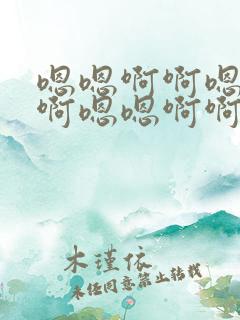 嗯嗯啊啊嗯
啊嗯嗯啊啊
木瑾依
未经同意禁止转载